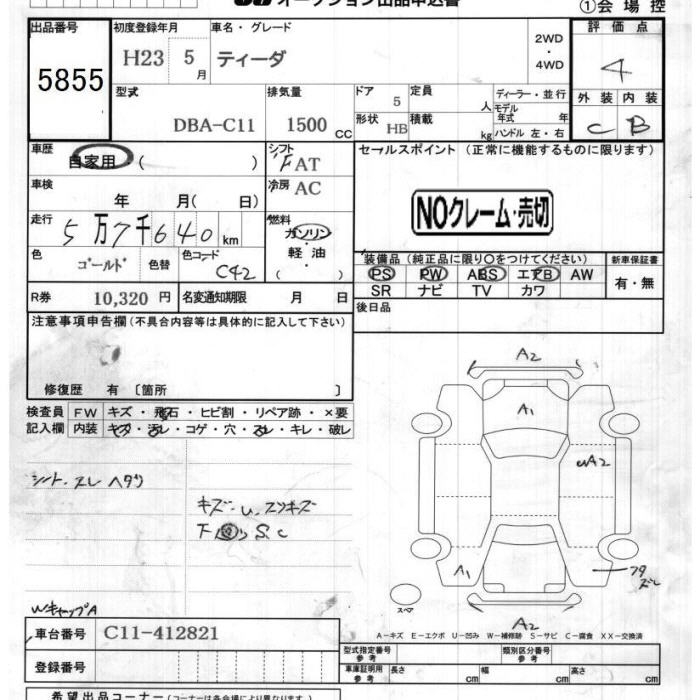 オークション出品申込書
①会場控
出品番号 5855
初度登録年月 H23 5月
車名・グレード ティーダ
2WD・4WD
評価点 4
外装 C 内装 B
型式 DBA-C11
排気量 1500 CC
ドア 5
定員 人
形状 HB
積載 kg
ディーラー・並行
モデル年式 年
ハンドル 左・右
車歴 自家用・( )
シフト FAT
セールスポイント (正常に機能するものに限ります)
車検 年 月( 日)
冷房 AC
NOクレーム・売切
走行 5万7千640km
燃料 ガソリン・軽・油 ( )
色 ゴールド 色替
色コード C42
装備品(純正品に限り〇をつけてください)
新車保証書
PS PW ABS エアB AW
有・無
SR ナビ TV カワ
R券 10,320円
名変通知期限 月 日
後日品
注意事項申告欄(不具合内容等は具体的に記入して下さい)
自家
修復歴 有 〔箇所 〕
検査員 FW キズ・飛石・ヒビ割・リペア跡・×要
記入欄 内装 キズ・汚レ・コゲ・穴・スレ・キレ・破レ
シート.スレ ヘタリ
キズ・U.スリキズ
S.C
WキャップA
A2
A1
UA2
A1
スペア
A2
A-キズ E-エクボ U-凹み W-補修跡 S-サビ C-腐食 XX-交換済
車台番号 C11-412821
型式指定番号 参考
類別区分番号 参考
登録番号
車庫証明用 参考 長さ cm 幅 cm 高さ cm
希望出品コーナー